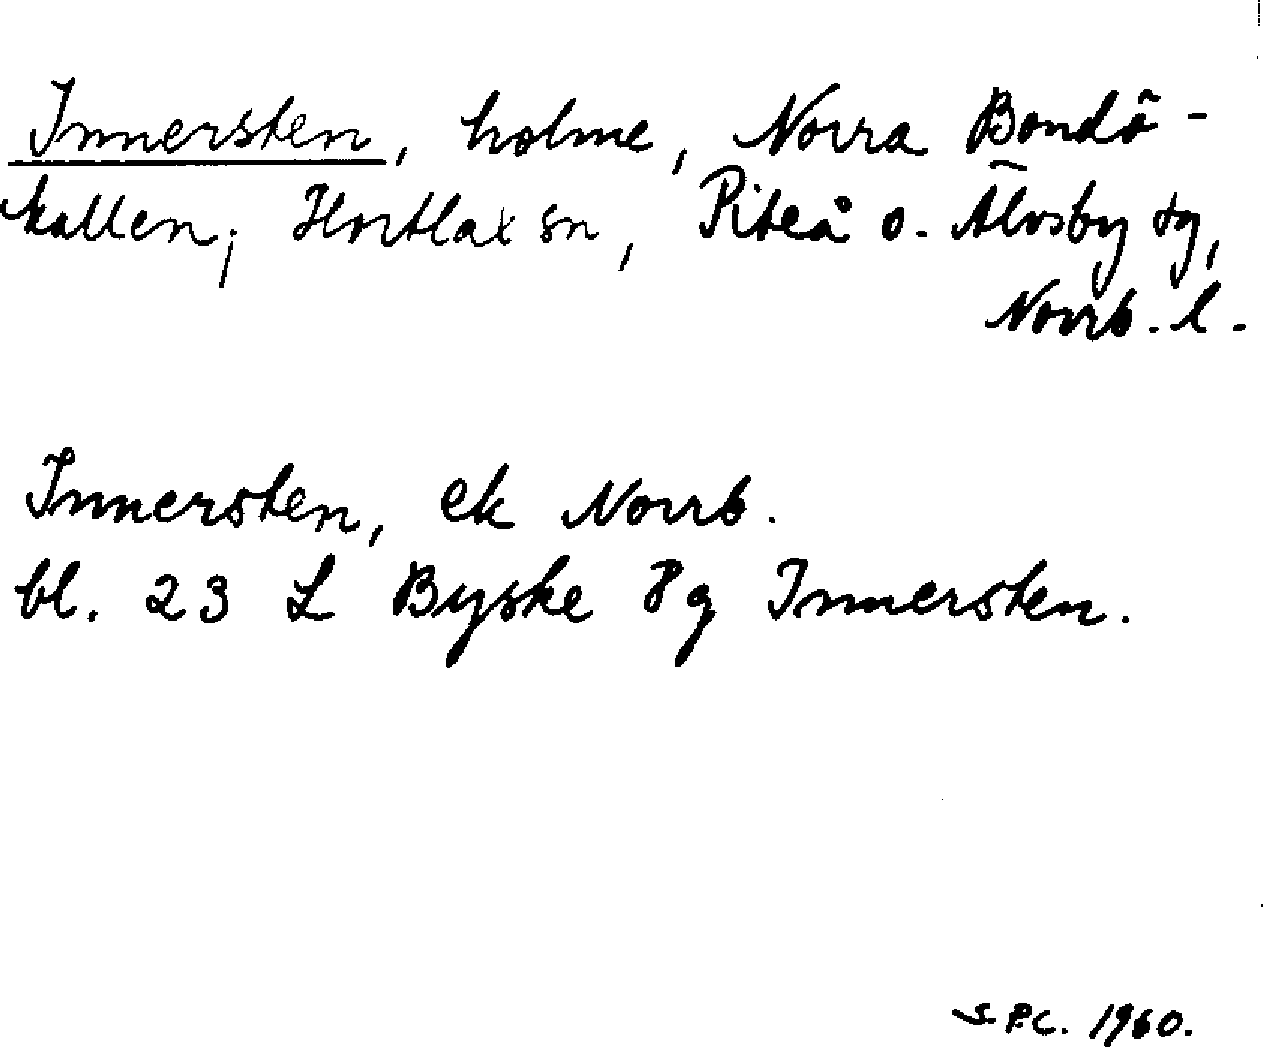 Innersten, holme, Norra Bondö-
kallen; Hortlax sn, Piteå o. Älvsby tg,
Norrb. l.
Innersten, ek Norrb.
bl. 23 L Byske 8g Innersten.
S.P.C. 1960.